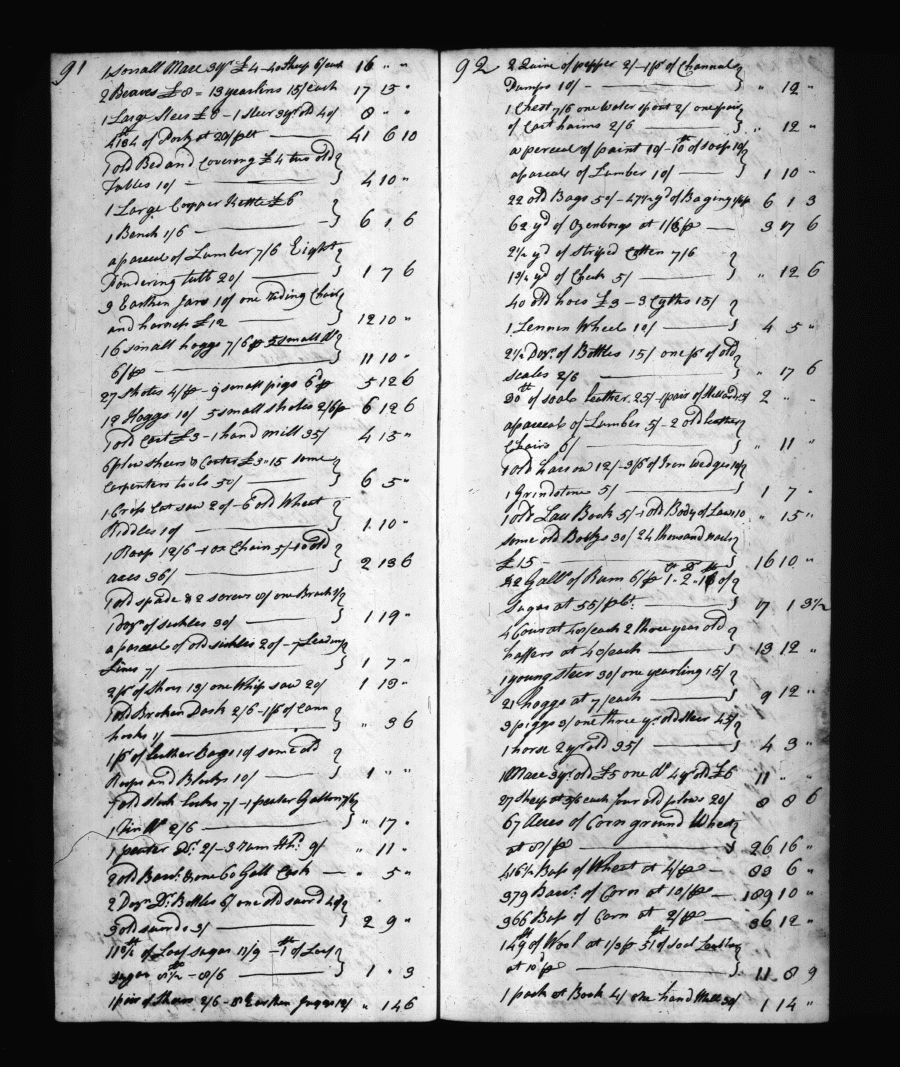 91
1 Small Mare 3 yr £4 - 40 Sheep 6/ each 16 " "
2 Beaves £8 = 13 yearlins 15/ each 17 15 "
1 Large Steer £8 - 1 Steer 3 yr old 40/ 8 " "
4134 lb of Pork at 20/ pCt 41 6 10
1 old Bed and Covering £4 two old
Tables 10/ 4 10 "
1 Large Copper Kettle £6
1 Bench 1/6 6 1 6
a parcel of Lumber 7/6 Eight
Powdering tubs 20/ 1 7 6
3 Earthen Jars 10/ one Riding Chair
and harness £12 12 10 "
16 small hoggs 7/6 p 5 small Do
6/ p 11 10 "
27 Shotes 4/ p - 9 small pigs 6d p 5 12 6
12 Hoggs 10/ 5 small shotes 2/6 p 6 12 6
1 old Cart £3 - 1 hand mill 35/ 4 15 "
6 plow sheers & Coster £3..15 some
Carpenters tools 50/ 6 5 "
1 Cross Cut saw 20/ - 6 old Wheat
Riddles 10/ 1 10 "
1 Roap 12/6 - 1 ox Chain 5/ - 10 old
axes 36/ 2 13 6
1 old spade & 2 screws 8/ one Brush 1/
1 Dozn of sickles 30/ 1 19 "
a parcel of old sickles 20/ - 7 Leading
Lines 7/ 1 7 "
2 pr of Shoes 13/ one Whip saw 20/ 1 13 "
1 old Broken Desk 2/6 - 1 pr of Cann
hooks 1/ " 3 6
1 pr of leather Bags 10/ some old
Roops and Blocks 10/ 1 " "
7 old stock locks 7/ - 1 peuter Gallon 7/6
1 Tin Do 2/6 " 17 "
1 peuter Do 2/ - 3 9/ " 11 "
2 old Barrs & one 60 Gall Cask " 5 "
2 Dozn Do Bottles 6/ one old sword 40/
3 old swords 3/ 2 9 "
11 3/4 lb of Loaf sugar 11/9 - 1 lb of Loaf
sugar 8 1/2 - 8/6 1 " 3
1 pair of Shoes 2/6 - 8 Earthen Juggs 12/ " 14 6
92
2 Quire of papper 2/ - 1 pr of Channal
Pumps 10/ " 12 "
1 Chest 7/6 one Water spoot 2/ one pair
of Cart haims 2/6 " 12 "
a parcel of paint 10/ - 10 lb of soap 10/
a parcel of Lumber 10/ 1 10 "
22 old Bags 50/ - 47 1/4 yd of Baging 6 1 3
62 yd of Ozenbrigs at 1/3 p 3 17 6
2 1/4 yd of striped Cotten 7/6
1 3/4 yd of Check 5/ " 12 6
40 old hoes £3 - 3 Cythes 15/
1 Lennen Wheel 10/ 4 5 "
2 1/2 Dozn of Bottles 15/ one pr of old
scales 2/6 " 17 6
30 lb of soale leather 25/ - 1 pair of 2 " "
a parcel of Lumber 5/ - 2 old leather
Chairs 6/ " 11 "
1 old harrow 12/ - 3 pr of Iron Wedges 10/
1 Grindstone 5/ 1 7 "
1 old Law Book 5/ - 1 old Body of Law 10 " 15 "
some old Books 30/ 24 thousand nails
£15 16 10 "
22 Galls of Rum 6/ p 1 2 of
Sugar at 55/ pCt 17 1 3 1/2
4 Cows at 40/ each 2 three year old
haffers at 40/ each 13 12 "
1 young steer 30/ one yearling 15/
21 hoggs at 7/ each 9 12 "
3 piggs 3/ one three yr old steer 45/
1 horse 2 yr old 35/ 4 3 "
1 Mare 3 yr old £5 one Do 4 yr old £6 11 " "
27 Sheep at 5/6 each four old plows 20/ 8 8 6
67 Acres of Corn ground Wheat
at 8/ p 26 16 "
416 1/2 Bus of Wheat at 4/ p 83 6 "
379 Barrs of Corn at 10/ p 189 10 "
366 Bus of Corn at 2/ p 36 12 "
149 lb of Wool at 1/3 p 51 lb of soal Leather
at 10d p 11 8 9
1 pack at Book 4/ one hand Mill 30/ 1 14 "